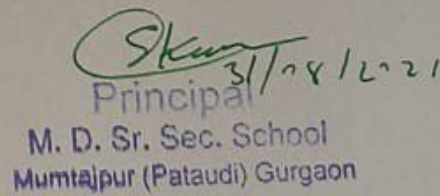 31/08/2021
Principal
M. D. Sr. Sec. School
Mumtajpur (Pataudi) Gurgaon